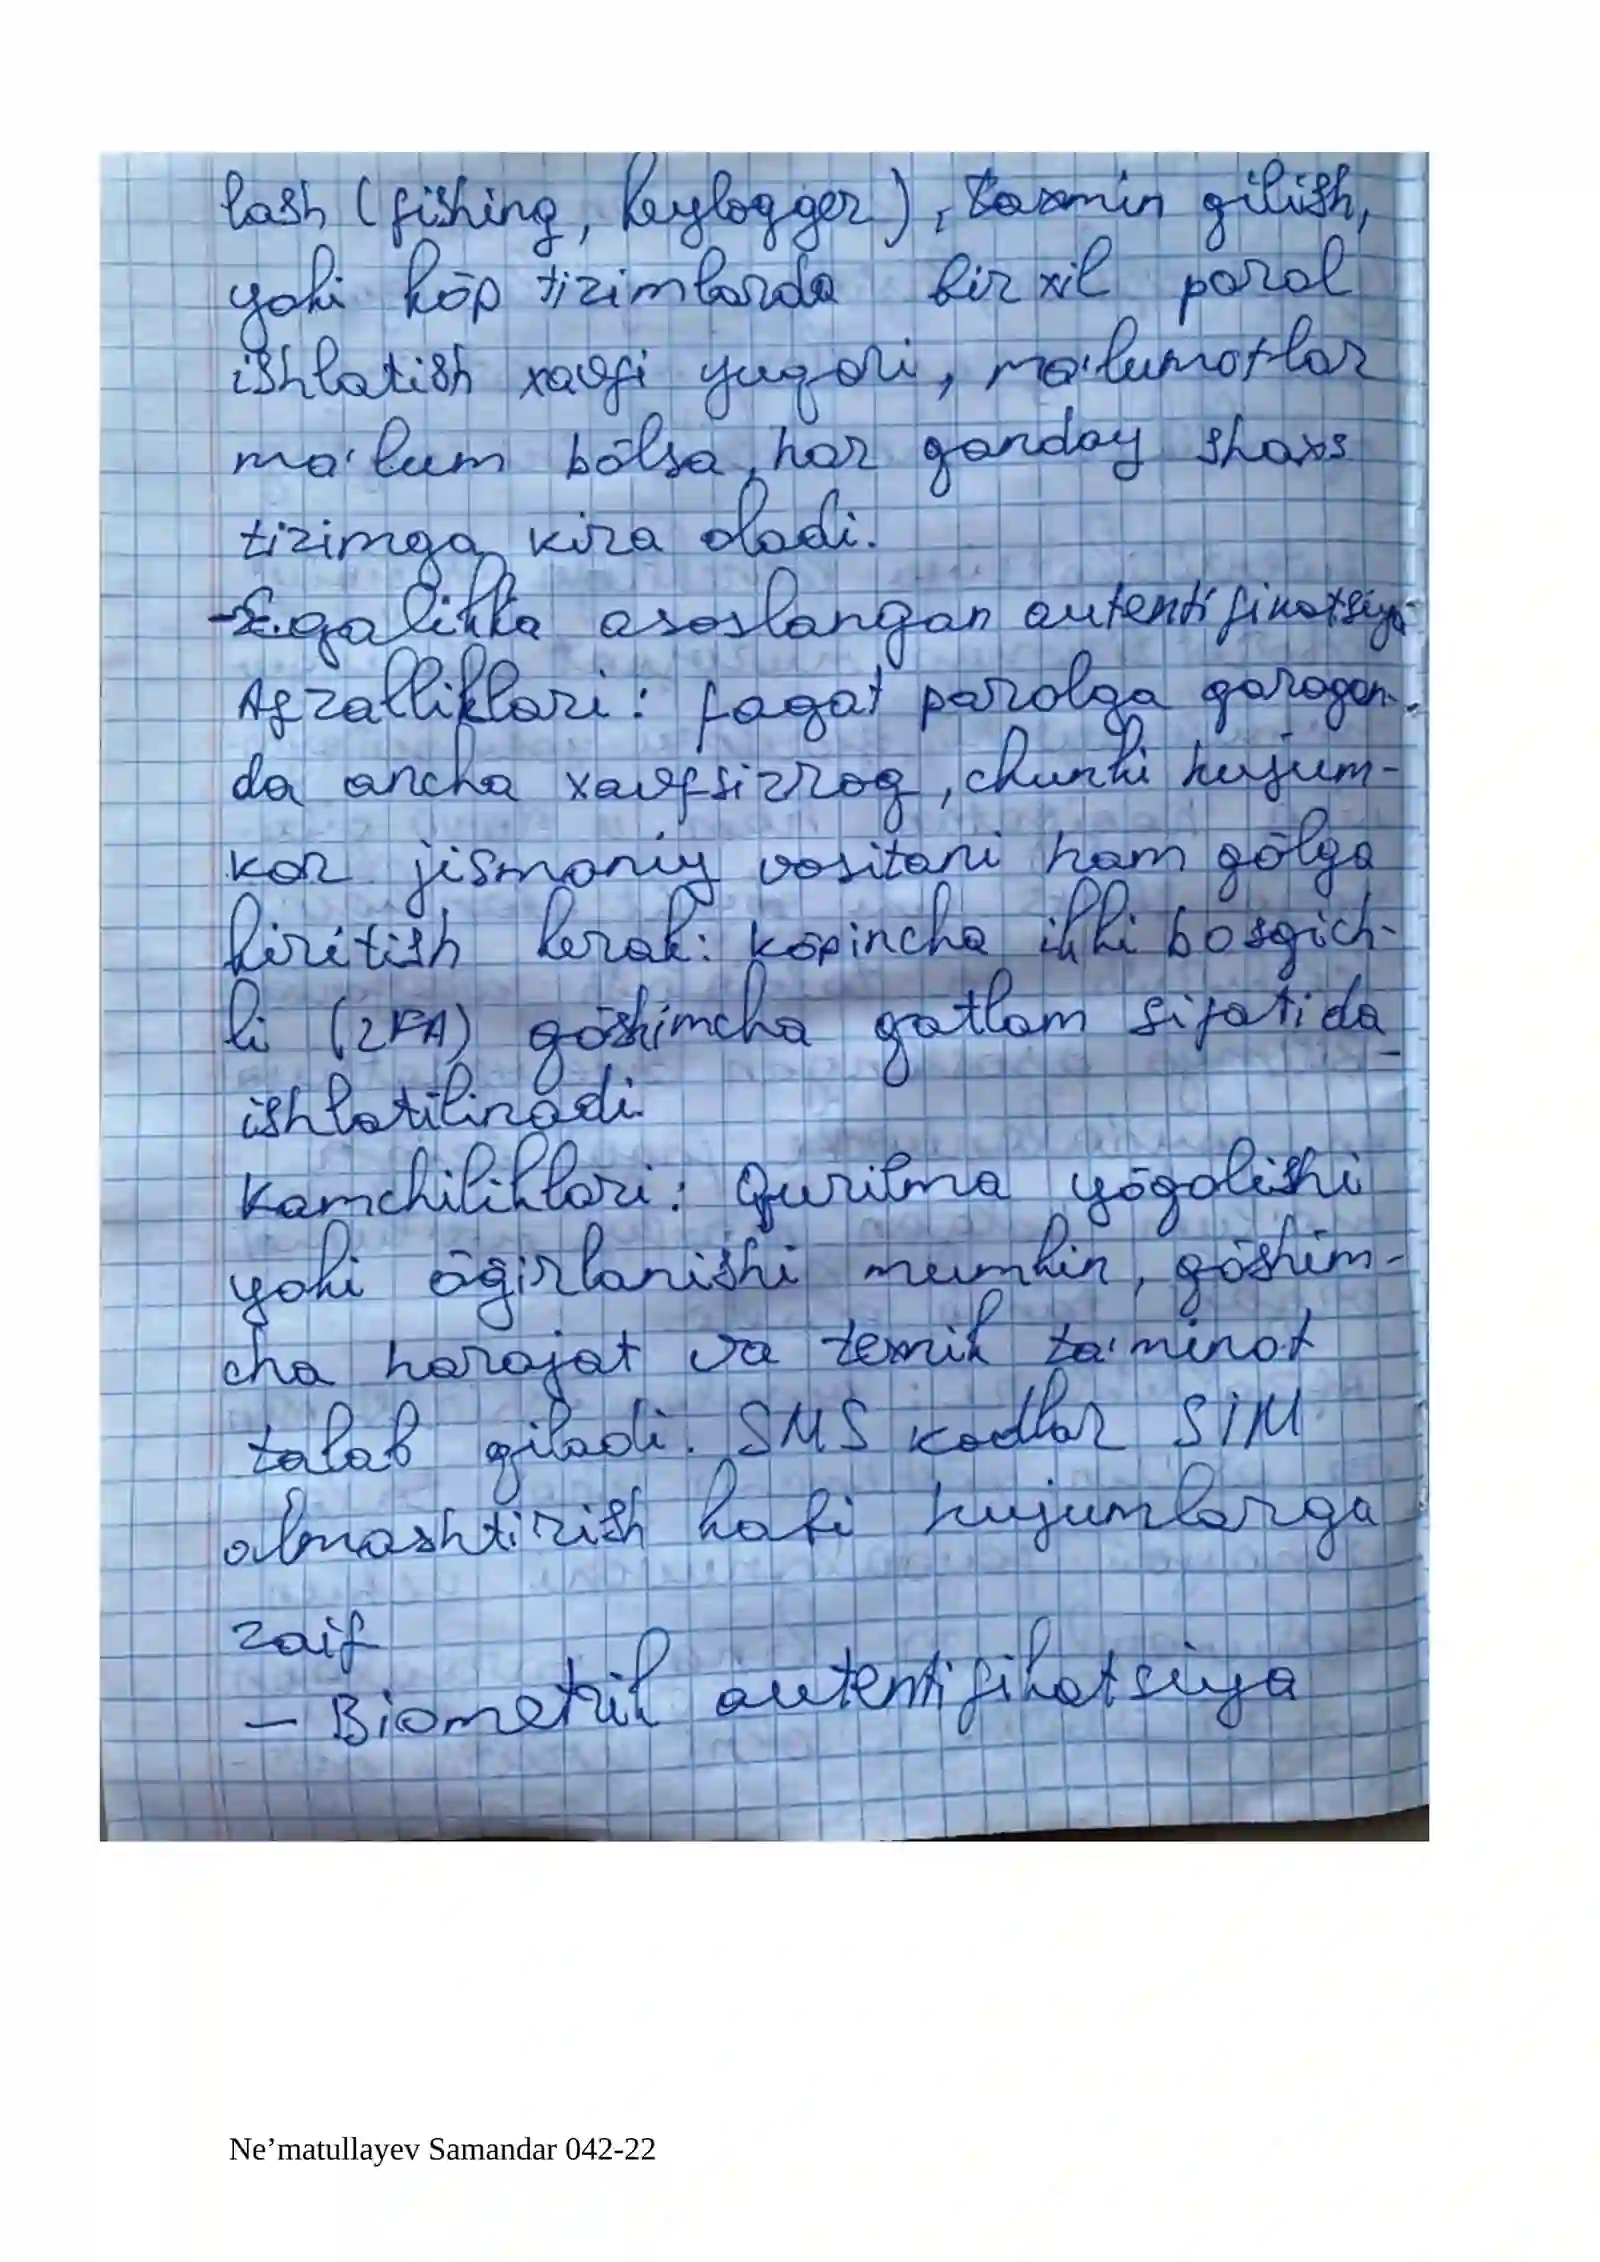 lash (fishing, keylogger), taxmin qilish,
yoki ko̅p tizimlarda bir xil parol
ishlatish xavfi yuqori, ma'lumotlar
ma'lum bo̅lsa, har qanday shaxs
tizimga kira oladi.
- Egalikka asoslangan autentifikatsiya
Afzalliklari: faqat parolga qaragan-
da ancha xavfsizroq, chunki hujum-
kor jismoniy vositani ham qo̅lga
kiritish kerak: ko̅pincha ikki bosqich-
li (2FA) qo̅shimcha qatlam sifatida
ishlatilinadi.
Kamchiliklari: Qurilma yo̅qolishi
yoki o̅g̅irlanishi mumkin, qo̅shim-
cha harajat va texnik ta'minot
talab qiladi. SMS kodlar SIM
almashtirish kabi hujumlarga
zaif
- Biometrik autentifikatsiya
Ne’matullayev Samandar 042-22